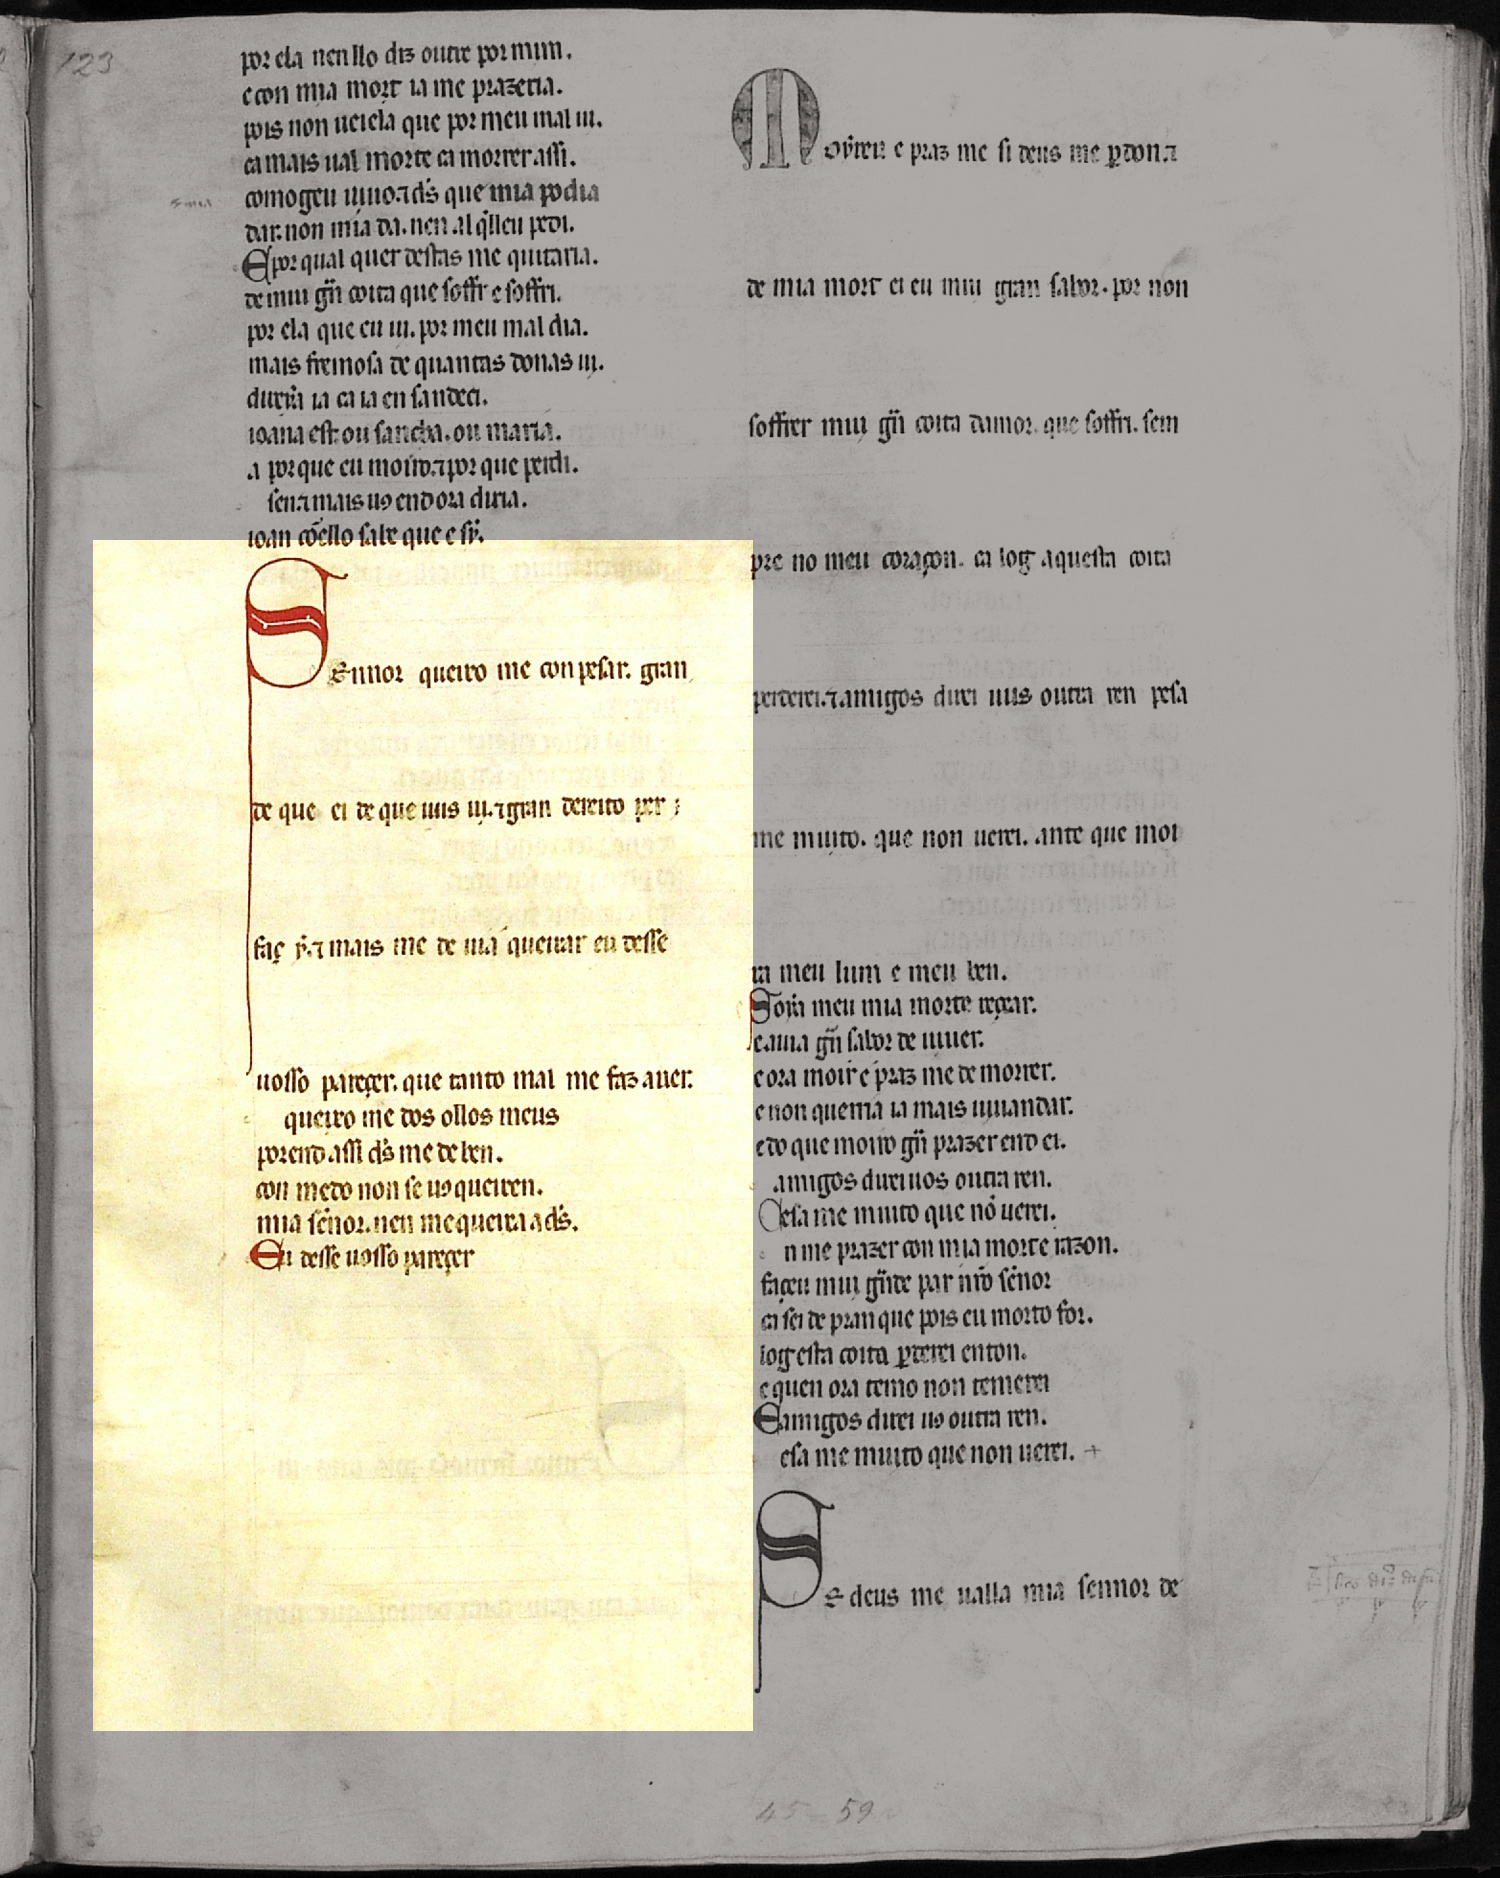 123
por ela nen llo diz outre por mim.
e con mia mort ia me prazeria.
pois non ueiela que por meu mal ui.
ca mais ual morte ca morrer assi.
comogeu uiuo. ⁊ ds̃ que mia podia
dar. non mia da. nen al q̇lleu pedi.
E por qual quer destas me quitaria.
de mui gñ coita que soffr e soffri.
por ela que eu ui. por meu mal dia.
mais fremosa de quantas donas ui.
direi'a ia ca ia en sandeci.
ioana est. ou sancha. ou maria.
a por que eu moiro. ⁊ por que perdi.
sen. ⁊ mais uꝯ end ora diria.
ioan cõello sabe que e sy̓.
S
Ennor queixo me con pesar. gran
de que ei de que uus ui. ⁊ gran dereito per
faç y̓. ⁊ mais me de uia queixar eu desse
uosso pareçer. que tanto mal me faz auer.
queixo me dos ollos meus
porend assi ds̃ me de ben.
con medo non se uꝯ queixen.
mia señor. nen me queixa a ds̃.
Eu desse uosso pareçer
M
oyreu e praz me si deus me ꝑdon. ⁊
de mia mort ei eu mui gran sabor. por non
soffrer mui gñ coita damor. que soffri. sem
pre no meu coraçon. ca log aquesta coita
perderei. ⁊ amigos direi uus outra ren pesa
me muito. que non uerei. ante que moi
ra meu lum e meu ben.
Soy̓a meu mia morte reçear.
e auia gñ sabor de uiuer.
e ora moir e praz me de morrer.
e non querria ia mais uiuandar.
e do que moiro gñ prazer end ei.
amigos direi uos outra ren.
esa me muito que nõ uerei.
n me prazer con mia morte razon.
façeu mui gñde par nr̃o señor
ca sei de pran que pois eu morto for.
log esta coita ꝑderei enton.
e quen ora temo non temerei
E amigos direi uꝯ outra ren.
esa me muito que non uerei. +
S
E deus me ualla mia sennor de
45 - 59